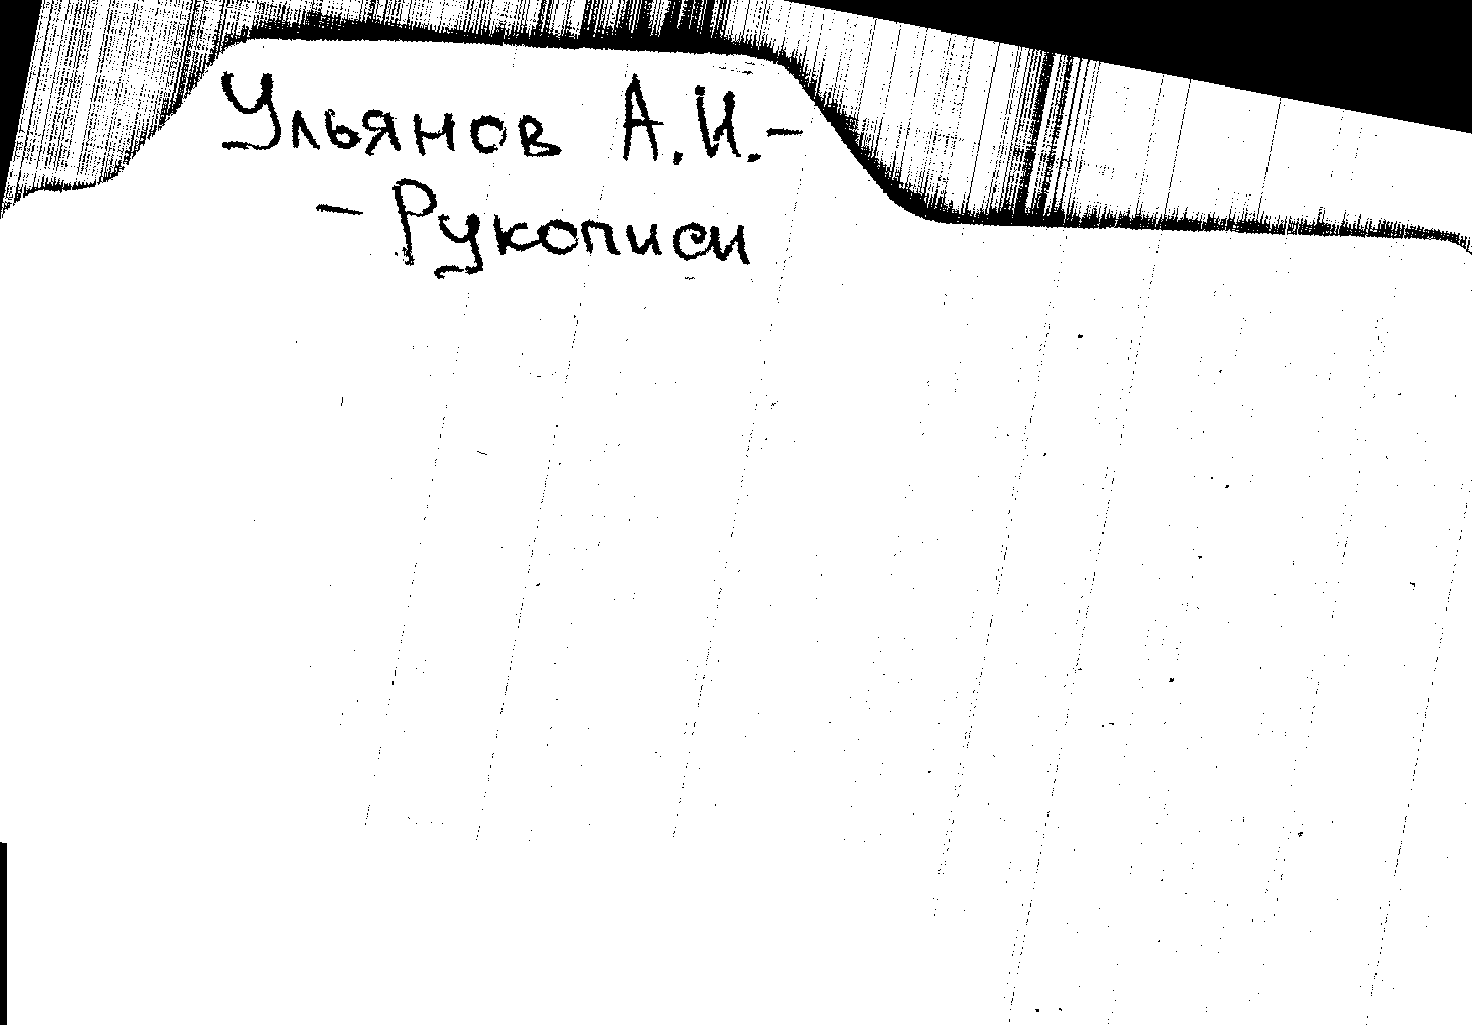 Ульянов А.И.-
- Рукописи